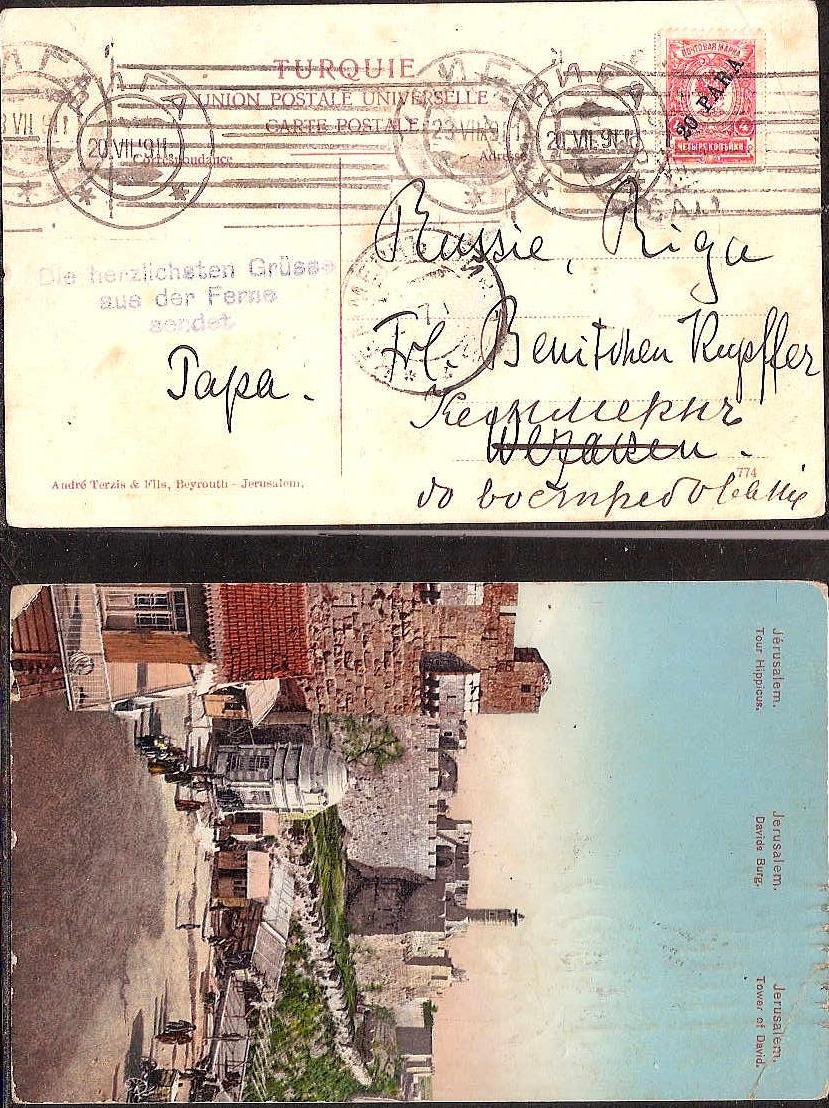 TURQUIE
UNION POSTALE UNIVERSELLE
CARTE POSTALE
Correspondance
Adresse
РИГА
20.VII.911
РИГА
20.VII.911
23.VII.911
ПОЧТОВАЯ МАРКА
20 PARA
ЧЕТЫРЕ КОПѢЙКИ
Die herzlichsten Grüsse
aus der Ferne
sendet
Papa.
Russie, Riga
Frl. Benitchen Kupffer
Кеммернъ
до востребованія
774
André Terzis & Fils, Beyrouth - Jerusalem.
Jérusalem.
Tour Hippicus.
Jerusalem.
Davids Burg.
Jerusalem.
Tower of David.